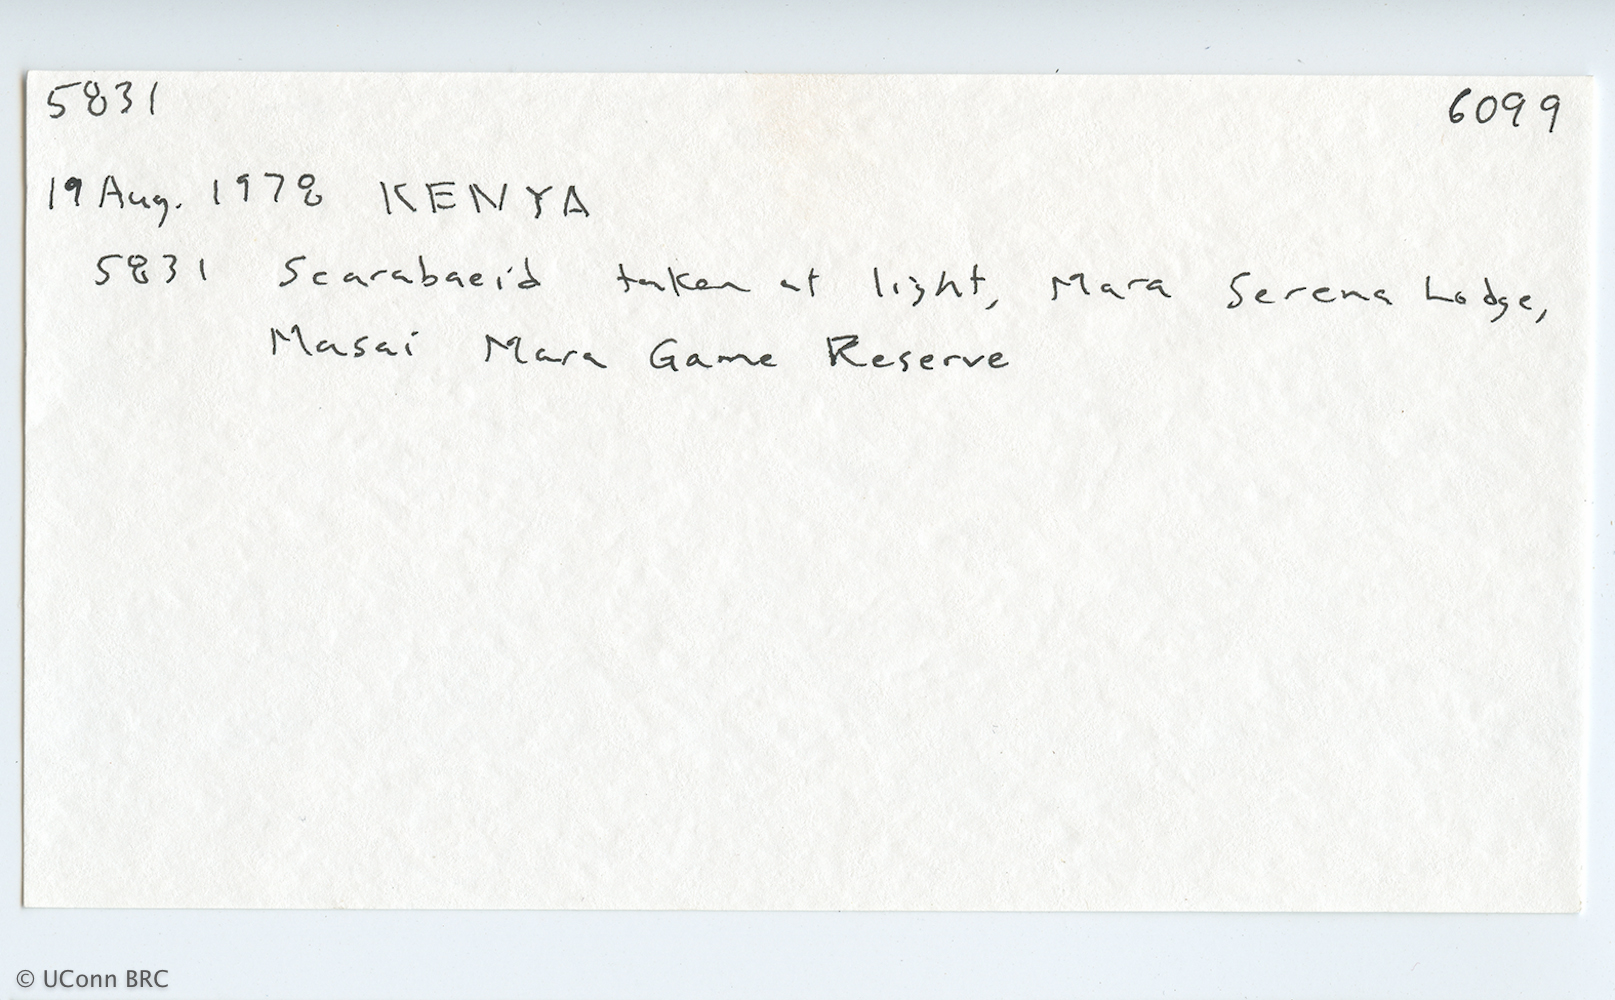 5831 6099
19 Aug. 1978 KENYA
5831 Scarabaeid taken at light, Mara Serena Lodge,
Masai Mara Game Reserve
© UConn BRC